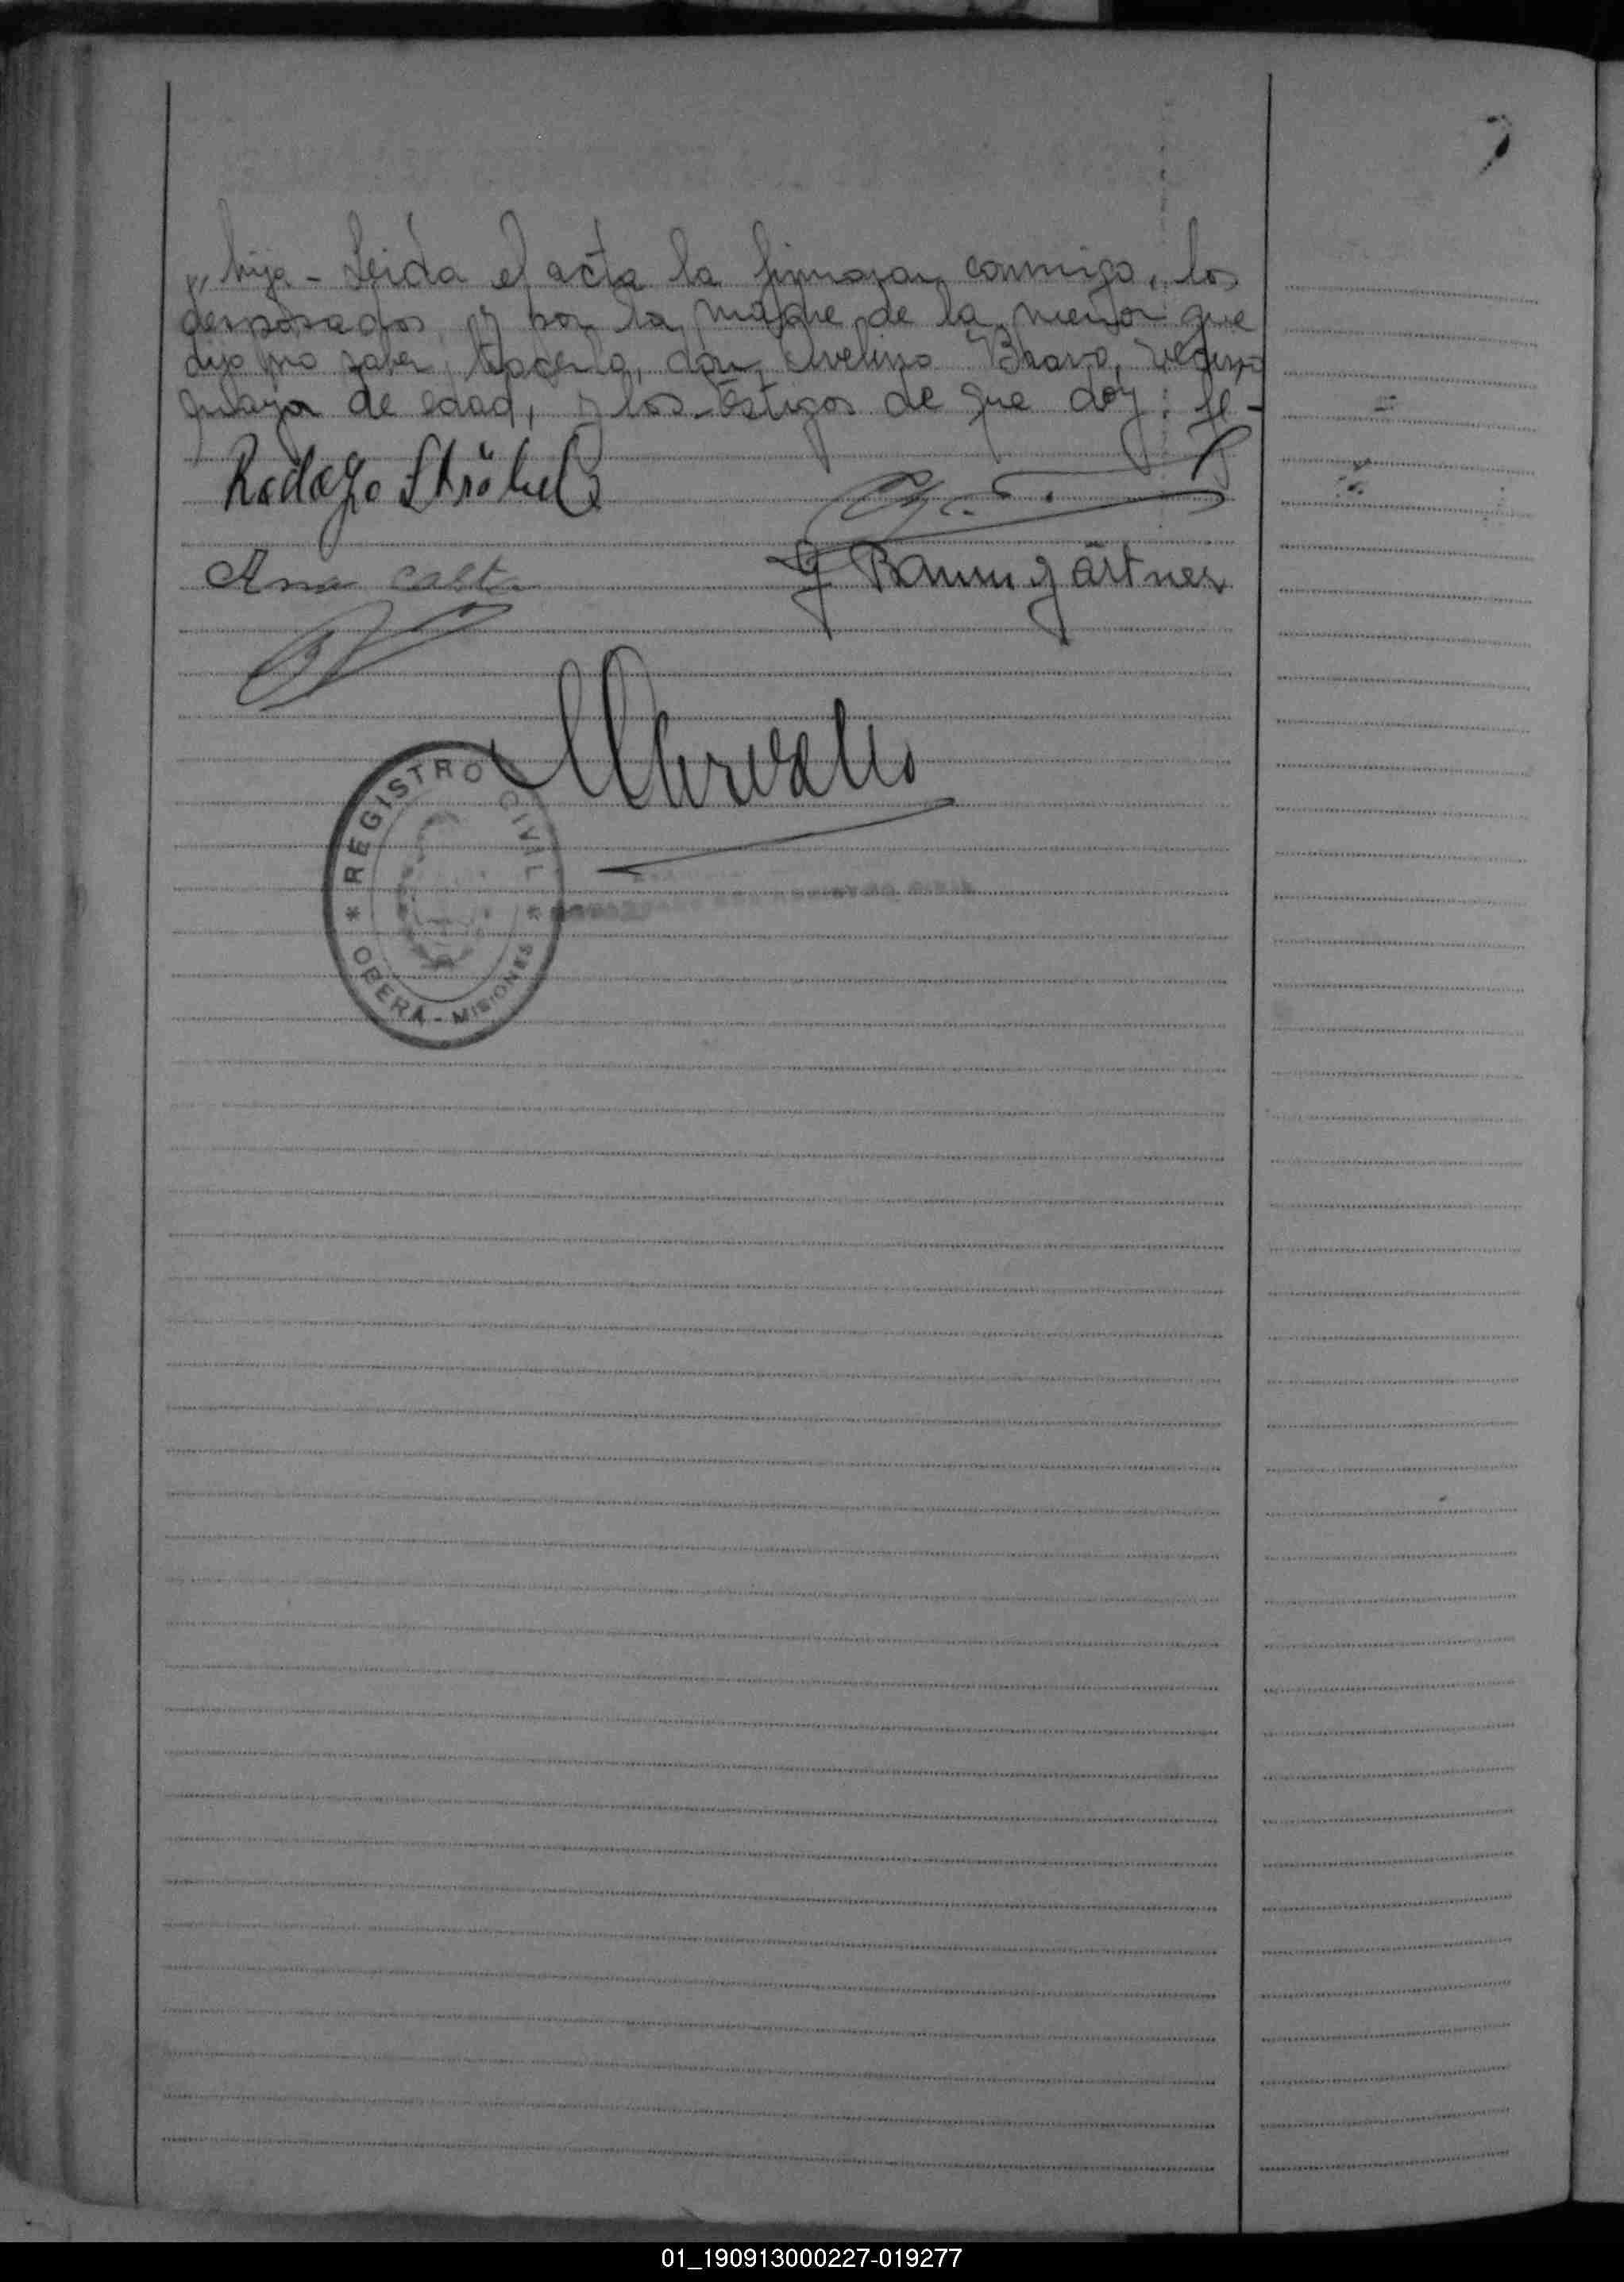 „ hija - Leida el acta la firmaran conmigo, los
desposados y por la madre de la menor que
dijo no saber hacerlo, don Avelino Bravo, vecino
mayor de edad, y los testigos de que doy: fe-
Rodolfo Ströhel
Ana
J Baumgärtner
REGISTRO CIVIL
* *
OBERA - MISIONES
01_190913000227-019277